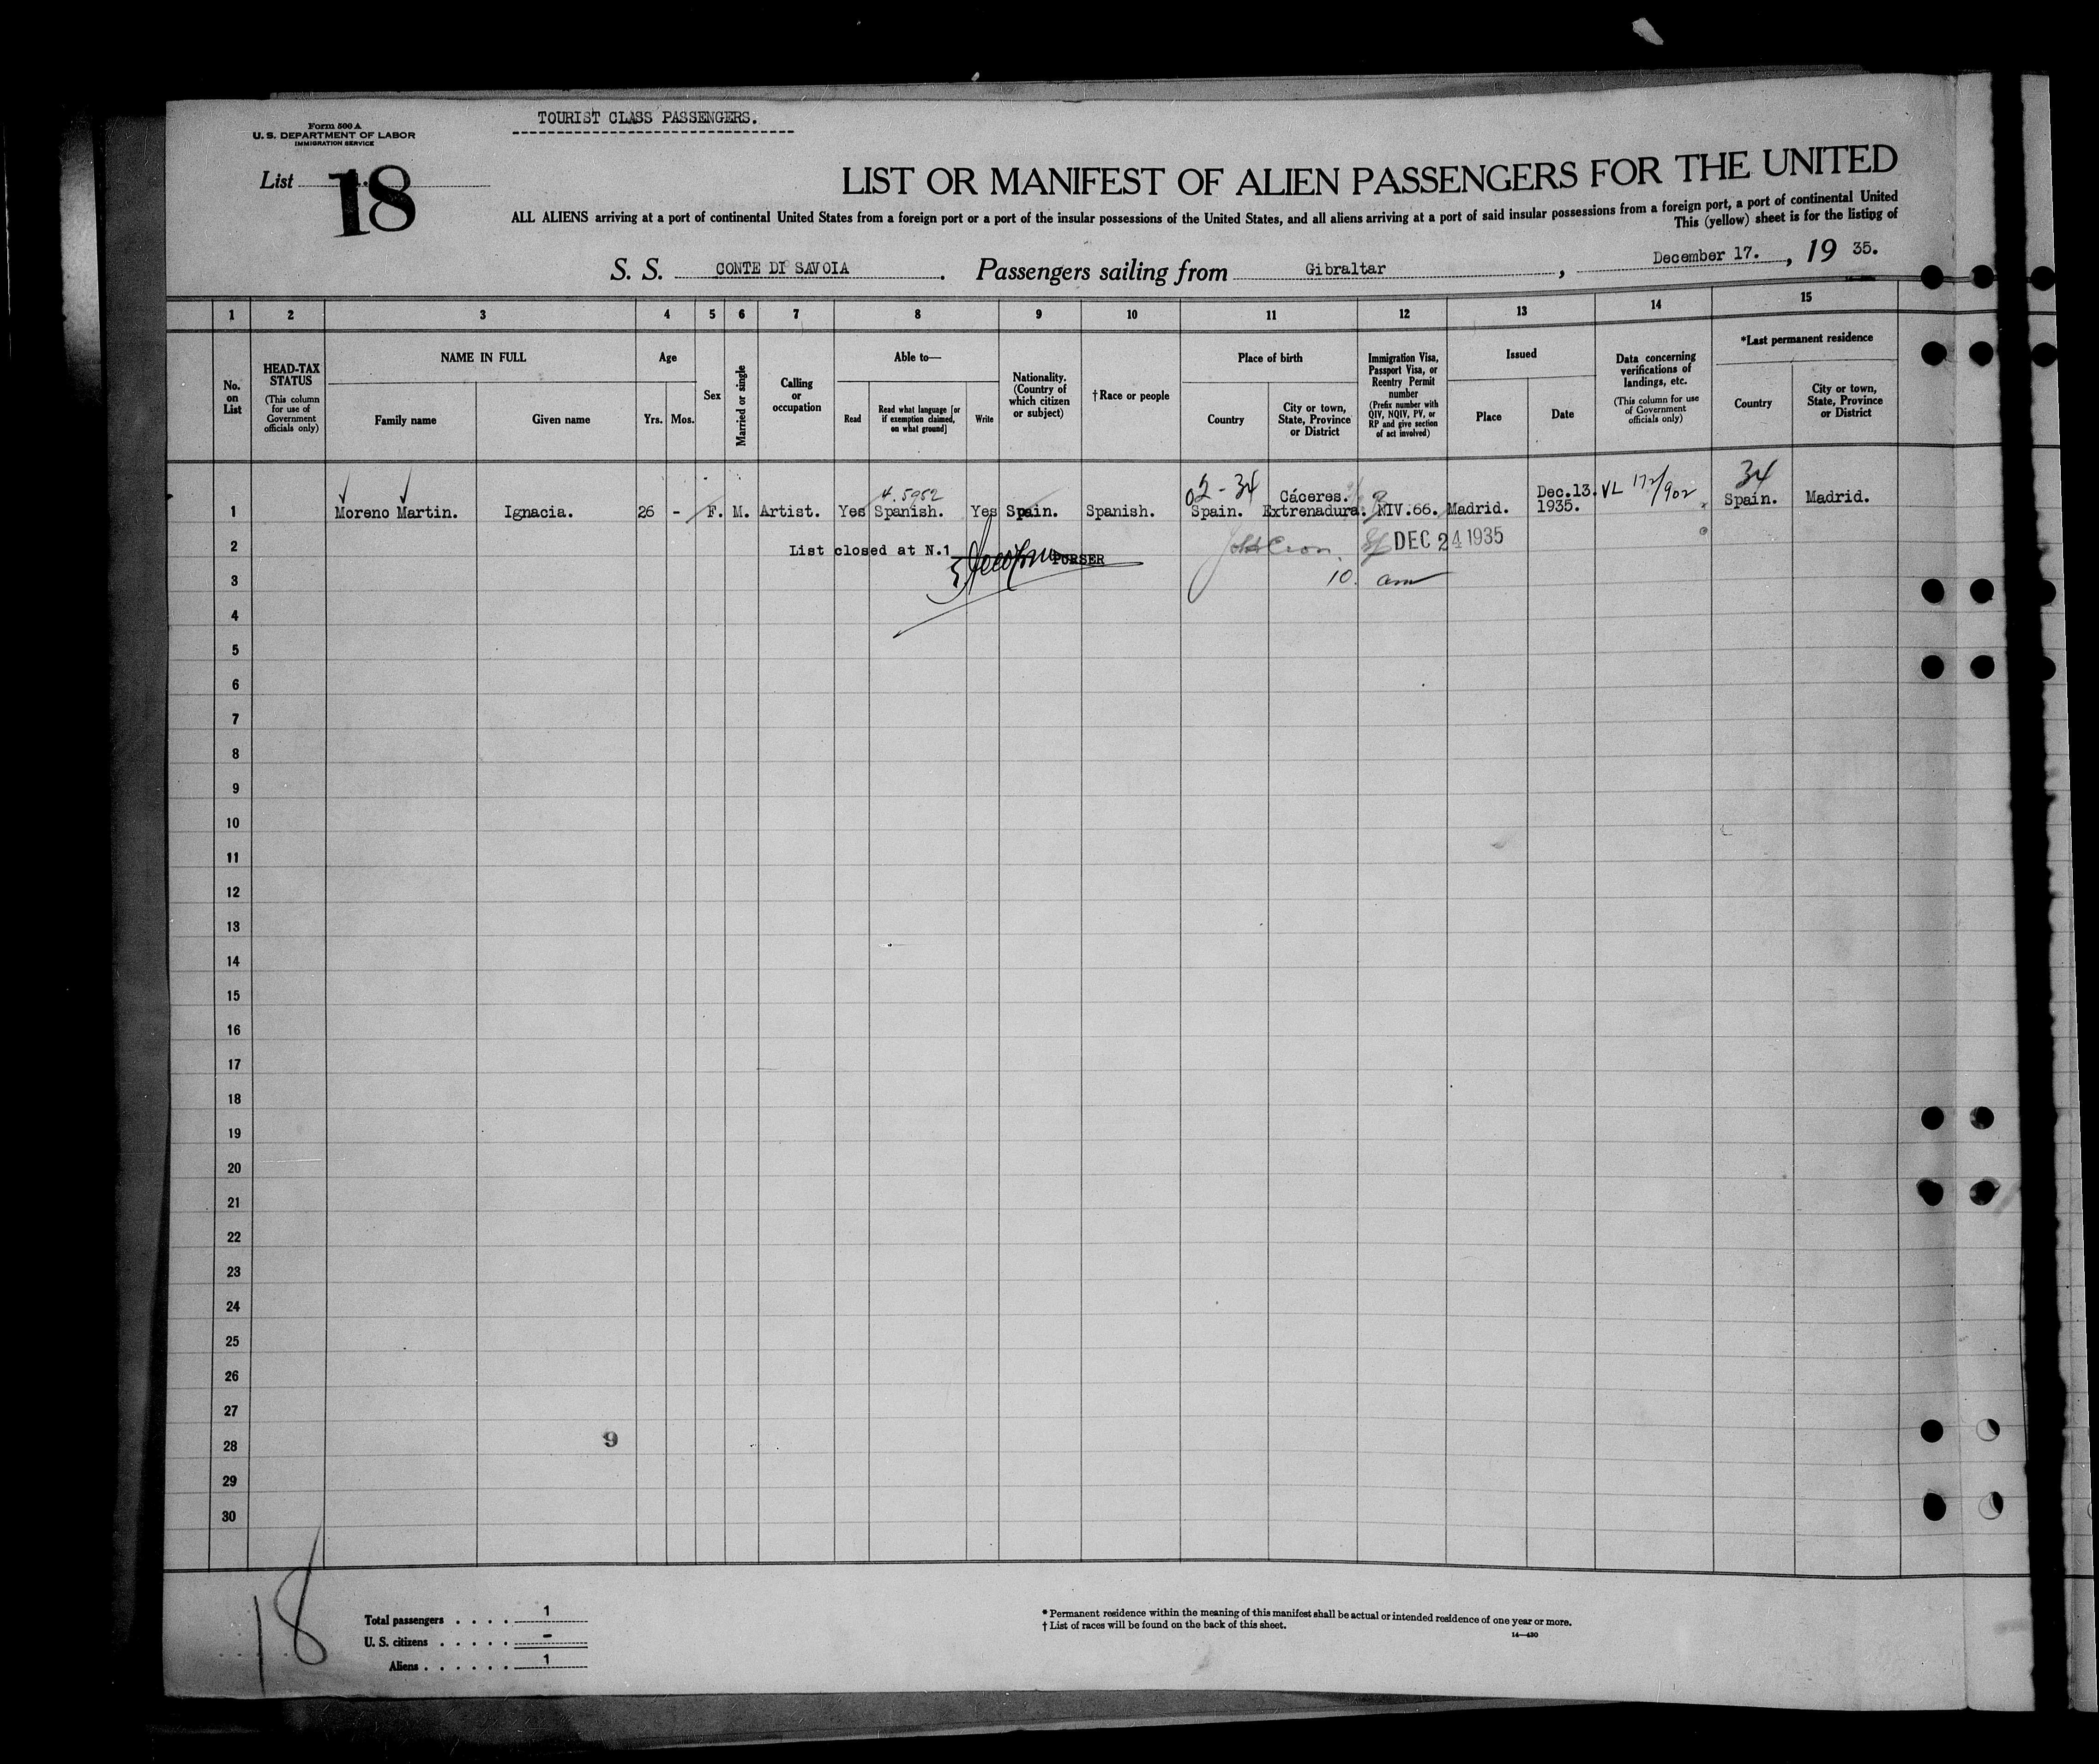 TOURIST CLASS PASSENGERS.
Form 500 A
U. S. DEPARTMENT OF LABOR
IMMIGRATION SERVICE
List 18
LIST OR MANIFEST OF ALIEN PASSENGERS FOR THE UNITED
ALL ALIENS arriving at a port of continental United States from a foreign port or a port of the insular possessions of the United States, and all aliens arriving at a port of said insular possessions from a foreign port, a port of continental United
This (yellow) sheet is for the listing of
S. S. CONTE DI SAVOIA. Passengers sailing from Gibraltar, December 17., 19 35.
1 2 3 4 5 6 7 8 9 10 11 12 13 14 15
No. on List
HEAD-TAX STATUS
(This column for use of Government officials only)
NAME IN FULL
Family name
Given name
Age
Yrs. Mos.
Sex
Married or single
Calling or occupation
Able to—
Read
Read what language [or if exemption claimed, on what ground]
Write
Nationality. (Country of which citizen or subject)
†Race or people
Place of birth
Country
City or town, State, Province or District
Immigration Visa, Passport Visa, or Reentry Permit number
(Prefix number with QIV, NQIV, PV, or RP and give section of act involved)
Issued
Place
Date
Data concerning verifications of landings, etc.
(This column for use of Government officials only)
*Last permanent residence
Country
City or town, State, Province or District
4.5952
02-34
Cáceres.
Dec.13.
VL 172/902
34
1 Moreno Martin. Ignacia. 26 - F. M. Artist. Yes Spanish. Yes Spain. Spanish. Spain. Extrenadura. NIV.66. Madrid. 1935. Spain. Madrid.
2 List closed at N.1 PURSER DEC 24 1935
3 10 am
4
5
6
7
8
9
10
11
12
13
14
15
16
17
18
19
20
21
22
23
24
25
26
27
28 9
29
30
18
Total passengers . . . . 1
U. S. citizens . . . . . -
Aliens . . . . . . 1
* Permanent residence within the meaning of this manifest shall be actual or intended residence of one year or more.
† List of races will be found on the back of this sheet.
14—430